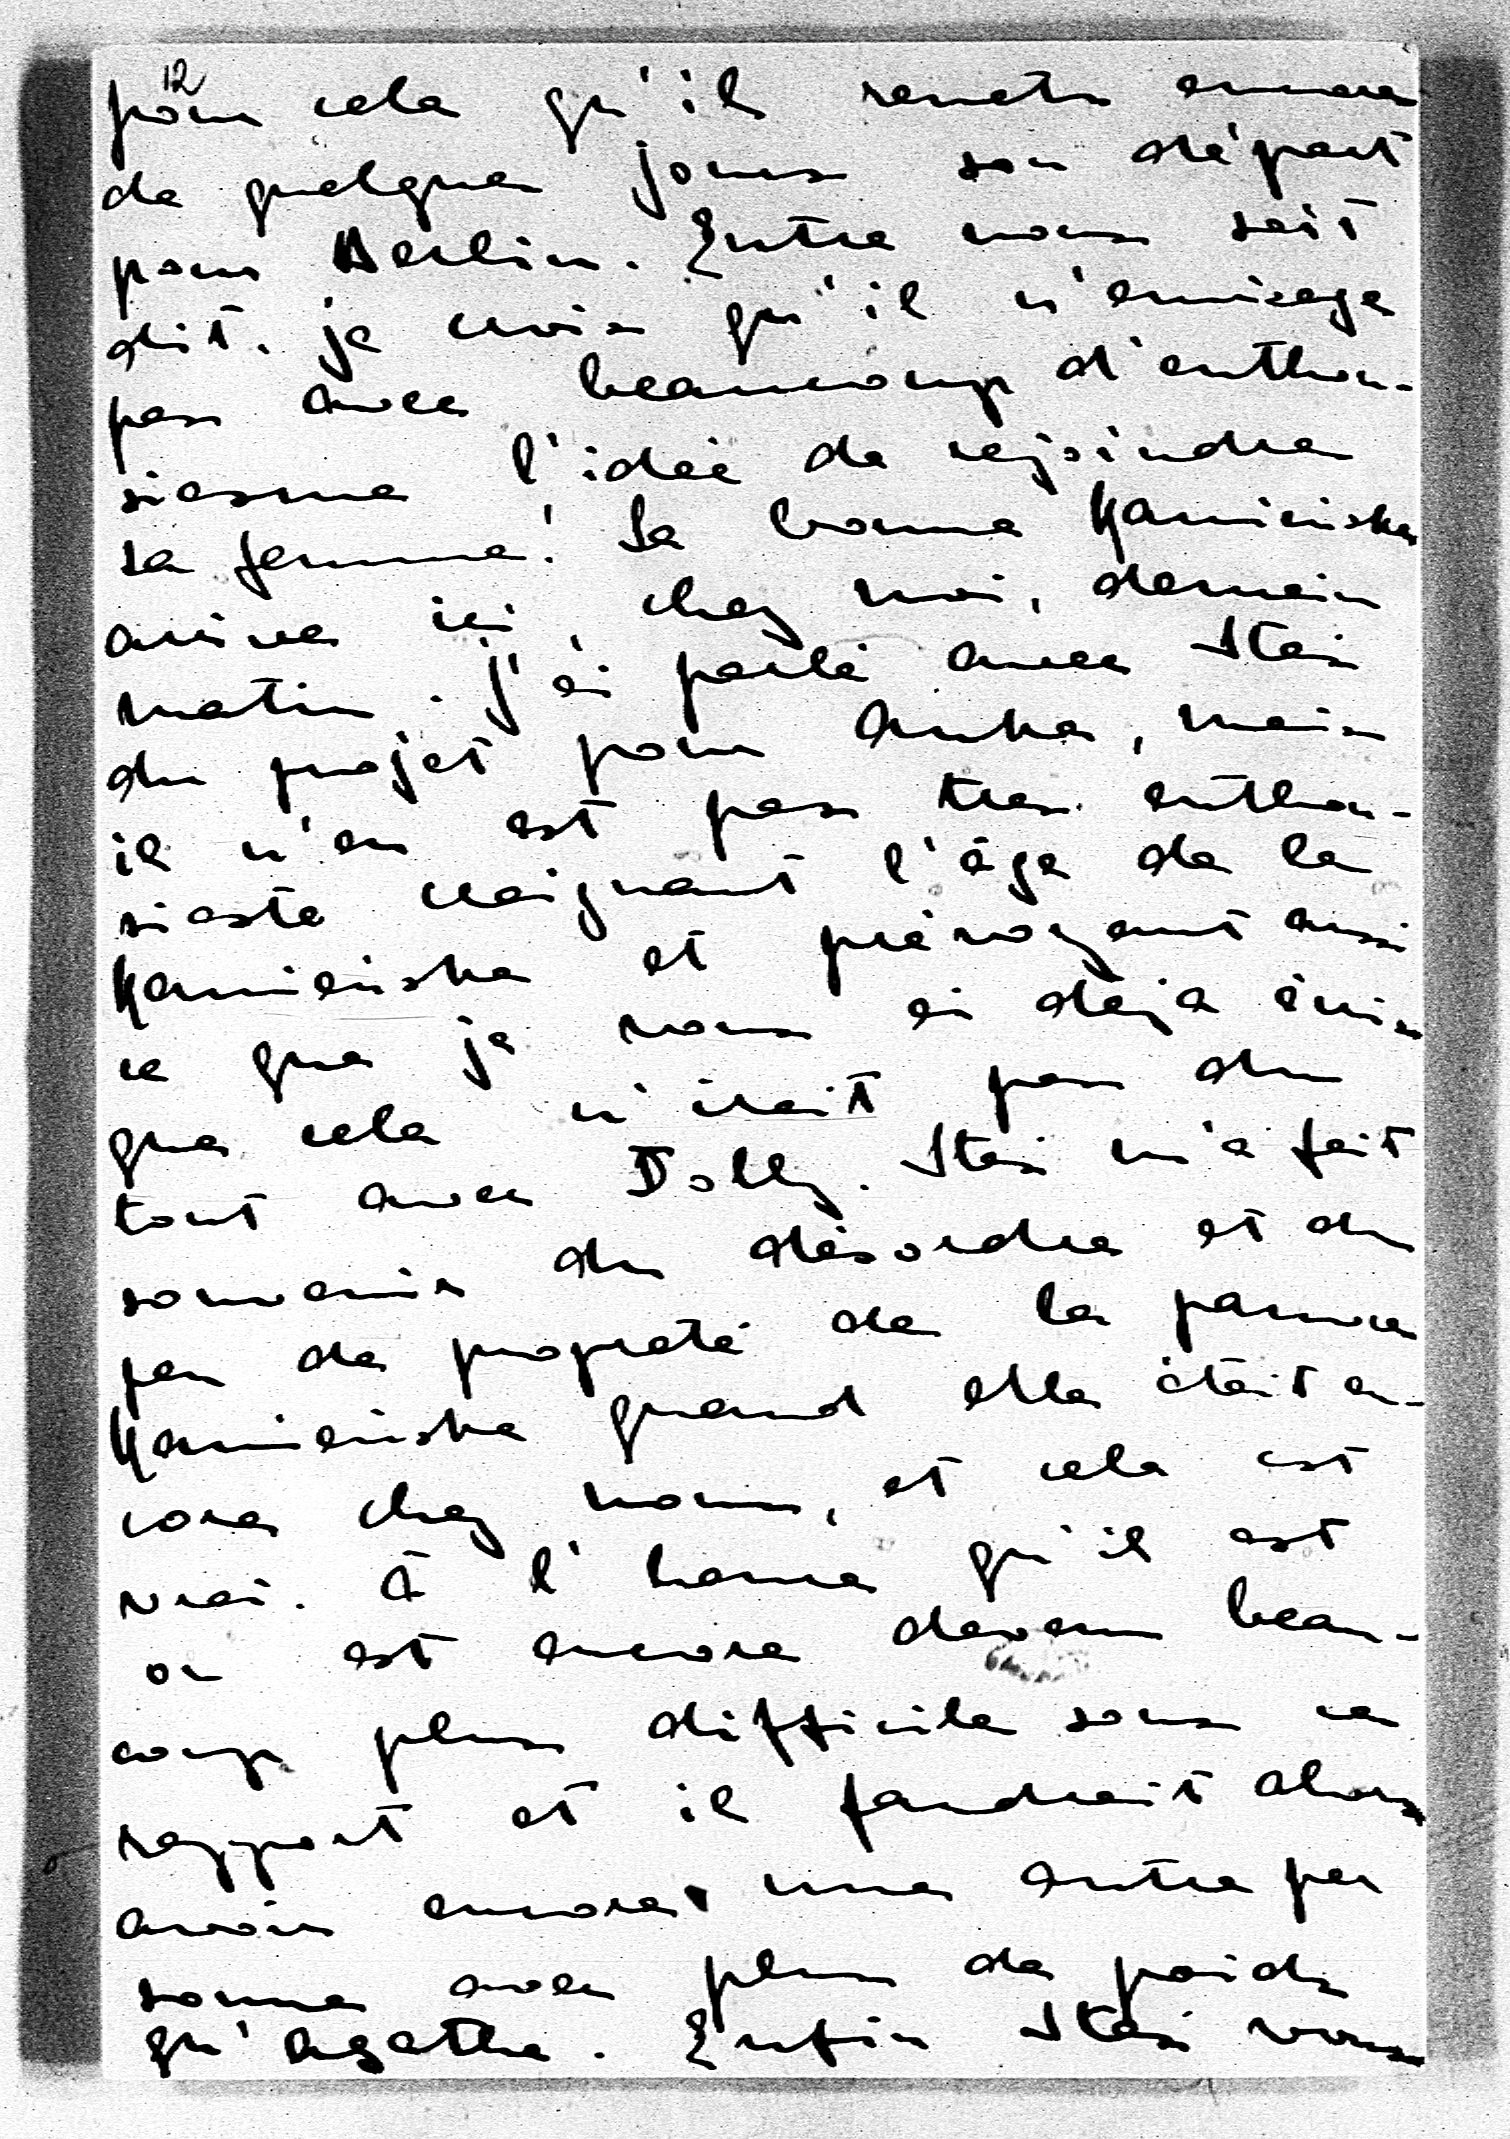 12
pour cela qu'il remette encore
de quelques jours son départ
pour Berlin. Entre nous soit
dit. je crois qu'il n'envisage
pas avec beaucoup d'enthou-
siasme l'idée de rejoindre
sa femme! La bonne Kamieńska
arrive ici, chez moi, demain
matin. j'ai parlé avec Stas
du projet pour Anka, mais
il n'en est pas tres enthou-
siaste craignant l'âge de la
Kamieńska et prévoyant aussi
ce que je vous ai déja écris
que cela n'irait pas du
tout avec Dolly. Stas m'a fait
souvenir du désordre et du
peu de propreté de la pauvre
Kamieńska quand elle était en-
core chez nous, et cela est
vrai. à l'heure qu'il est
on est encore devenu beau-
coup plus difficile sous ce
rapport et il faudrait alors
avoir encore une autre per
sonne avec plus de poids
qu'Agathe. Enfin Stas vous